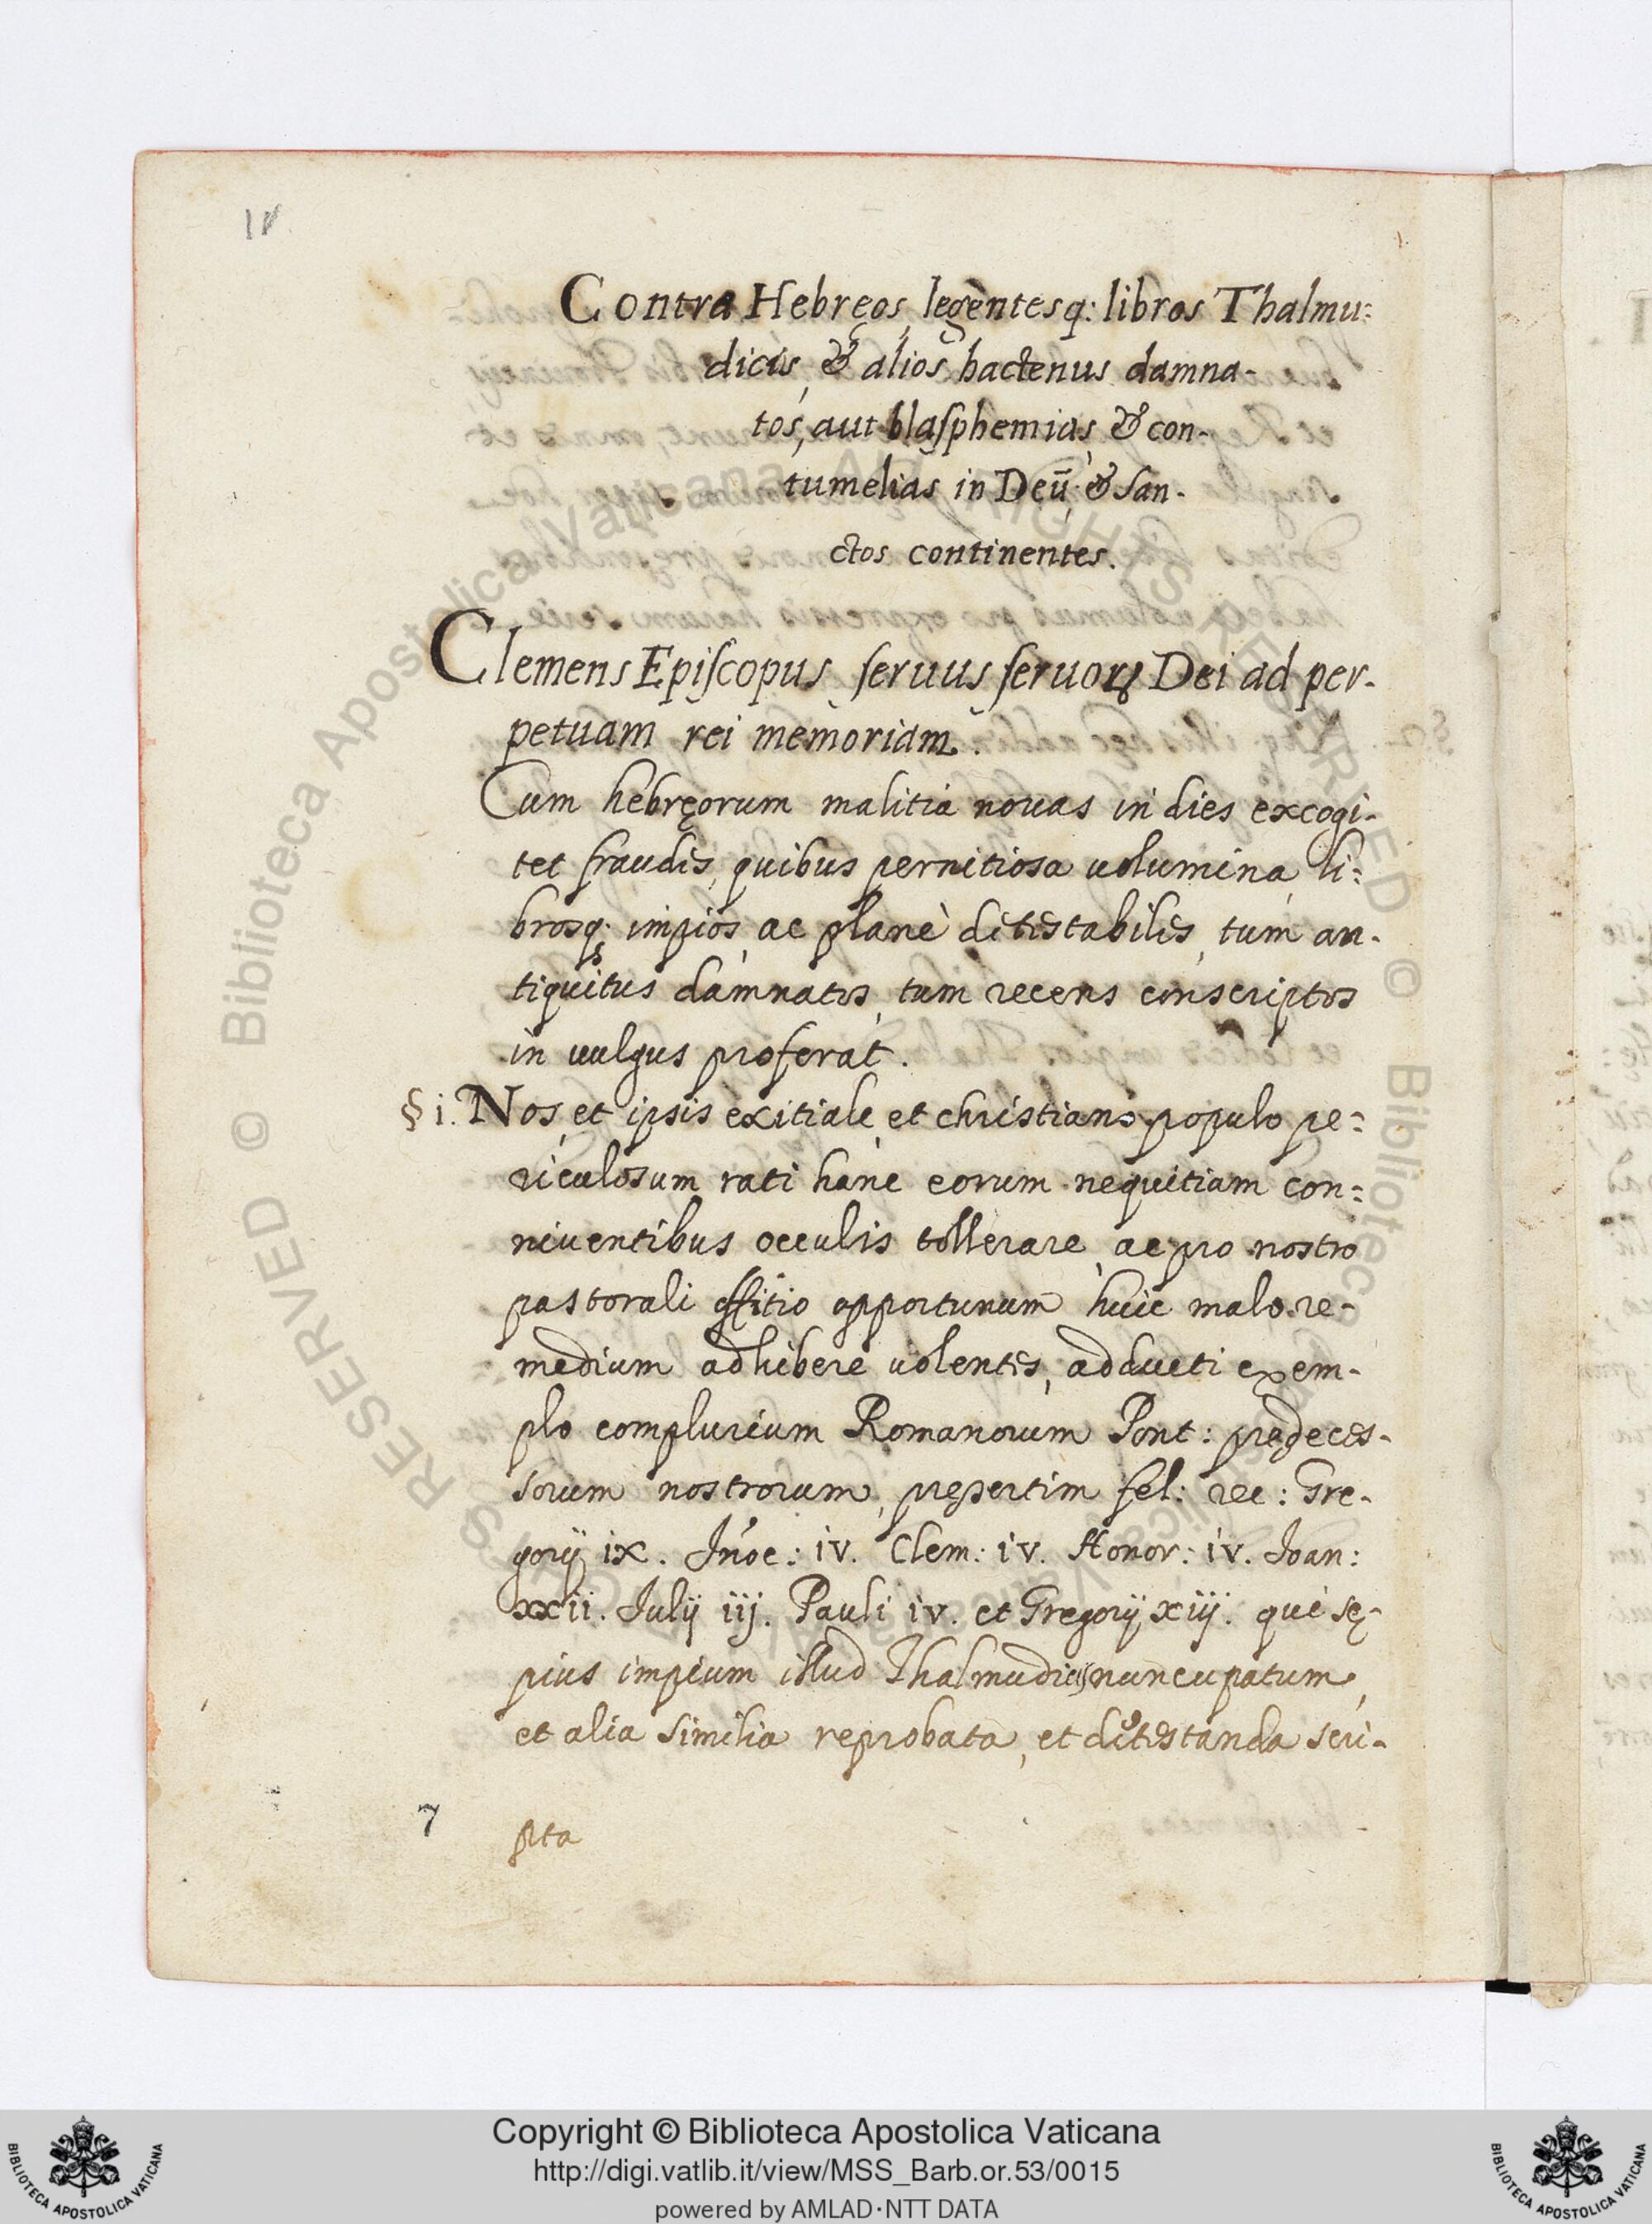 IV
1.
Contra Hebręos, legentesq: libros Thalmu:
dicis, & alios hactenus damna-
tos, aut blasphemias, & con-
tumelias in Deū, & San-
ctos continentes.
Clemens Episcopus seruus seruoꝝ Dei ad per-
petuam rei memoriam.
Cum hebręorum malitia nouas in dies excogi-
tet fraudes, quibus pernitiosa uolumina, li:
brosq: impios, ac planè detestabiles, tum an-
tiquitus damnatos, tum recens conscriptos
in uulgus proferat.
§ i. Nos, et ipsis exitiale, et christiano populo pe:
riculosum rati hanc eorum nequitiam con:
niuentibus occulis tollerare, ac pro nostro
pastorali offitio opportunum huic malo re-
medium adhibere uolentes, adducti exem-
plo complurium Romanorum Pont: prędeces-
sorum nostrorum, pręsertim fel: rec: Gre-
gorij ix. Iñoc: iv. Clem: iv. Honor: iv. Ioan:
xxii. Iulij iij. Pauli iv. et Gregorij xiij. què sę-
pius impium illud Thalmudicis nuncupatum,
et alia similia reprobata, et detestanda scri-
7
pta
© Biblioteca Apostolica Vaticana ALL RIGHTS RESERVED © Biblioteca Apostolica Vaticana ALL RIGHTS RESERVED
Copyright © Biblioteca Apostolica Vaticana
http://digi.vatlib.it/view/MSS_Barb.or.53/0015
powered by AMLAD·NTT DATA
BIBLIOTECA APOSTOLICA VATICANA
BIBLIOTECA APOSTOLICA VATICANA